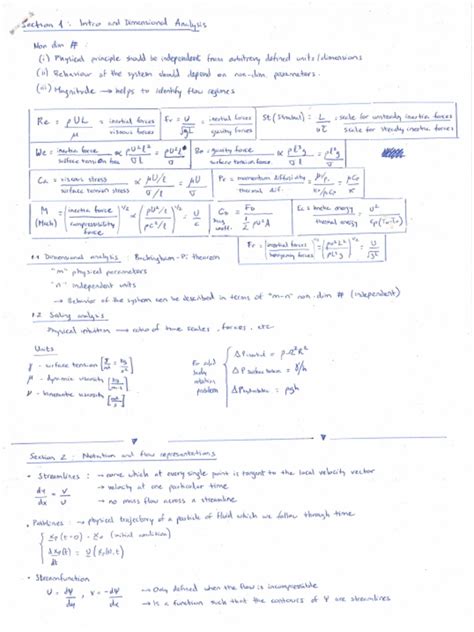 Section 1: Intro and Dimensional Analysis
Non dim #:
(i) Physical principle should be independent from arbitrary defined units/dimensions
(ii) Behaviour of the system should depend on non-dim. parameters.
(iii) Magnitude → helps to identify flow regimes
Re = ρUL/μ = inertial forces/viscous forces
Fr = U/√gL = inertial forces/gravity forces
St (Strouhal): L/uτ = scale for unsteady inertia forces/scale for steady inertia forces
We = inertia force/surface tension force ∝ ρU²L²/σL = ρU²L/σ
Bo = gravity force/surface tension force ∝ ρL³g/σL = ρL²g/σ
Ca = viscous stress/surface tension stress ∝ μU/L/σ/L = μU/σ
Pr = momentum diffusivity/thermal dif. = μ/ρ/κ/ρCp = μCp/κ
M (Mach) = (inertia force/compressibility force)^1/2 ∝ (ρU²/L/ρc²/L)^1/2 = U/c
= FD/½ρU²A
Ec = kinetic energy/thermal energy
Fr = (inertial forces/ forces)^1/2 = (ρU²L²/ρL³g)^1/2 = U/√gL
1.1 Dimensional analysis: Buckingham-Pi theorem
"m" physical parameters
"n" independent units
→ Behavior of the system can be described in terms of "m-n" non dim # (independent)
1.2 Scaling analysis
Physical intuition → ratio of time scales, forces, etc
Units
γ - surface tension
μ - dynamic viscosity
- kinematic viscosity
body rotation problem
ΔP = ρΩ²R²
ΔP surface tension = γ/h
ΔP = ρgh
Section 2: Notation and flow representations
• Streamlines: → curve which at every single point is tangent to the local velocity vector
dy/dx = v/u → velocity at one particular time
→ no mass flow across a streamline
• Pathlines: → physical trajectory of a particle of fluid which we follow through time
xp(t=0) = x0 (initial condition)
dxp(t)/dt = u(xp(t), t)
• Streamfunction
U = dΨ/dy, v = -dΨ/dx → Only defined when the flow is incompressible
→ Is a function such that the contours of Ψ are streamlines